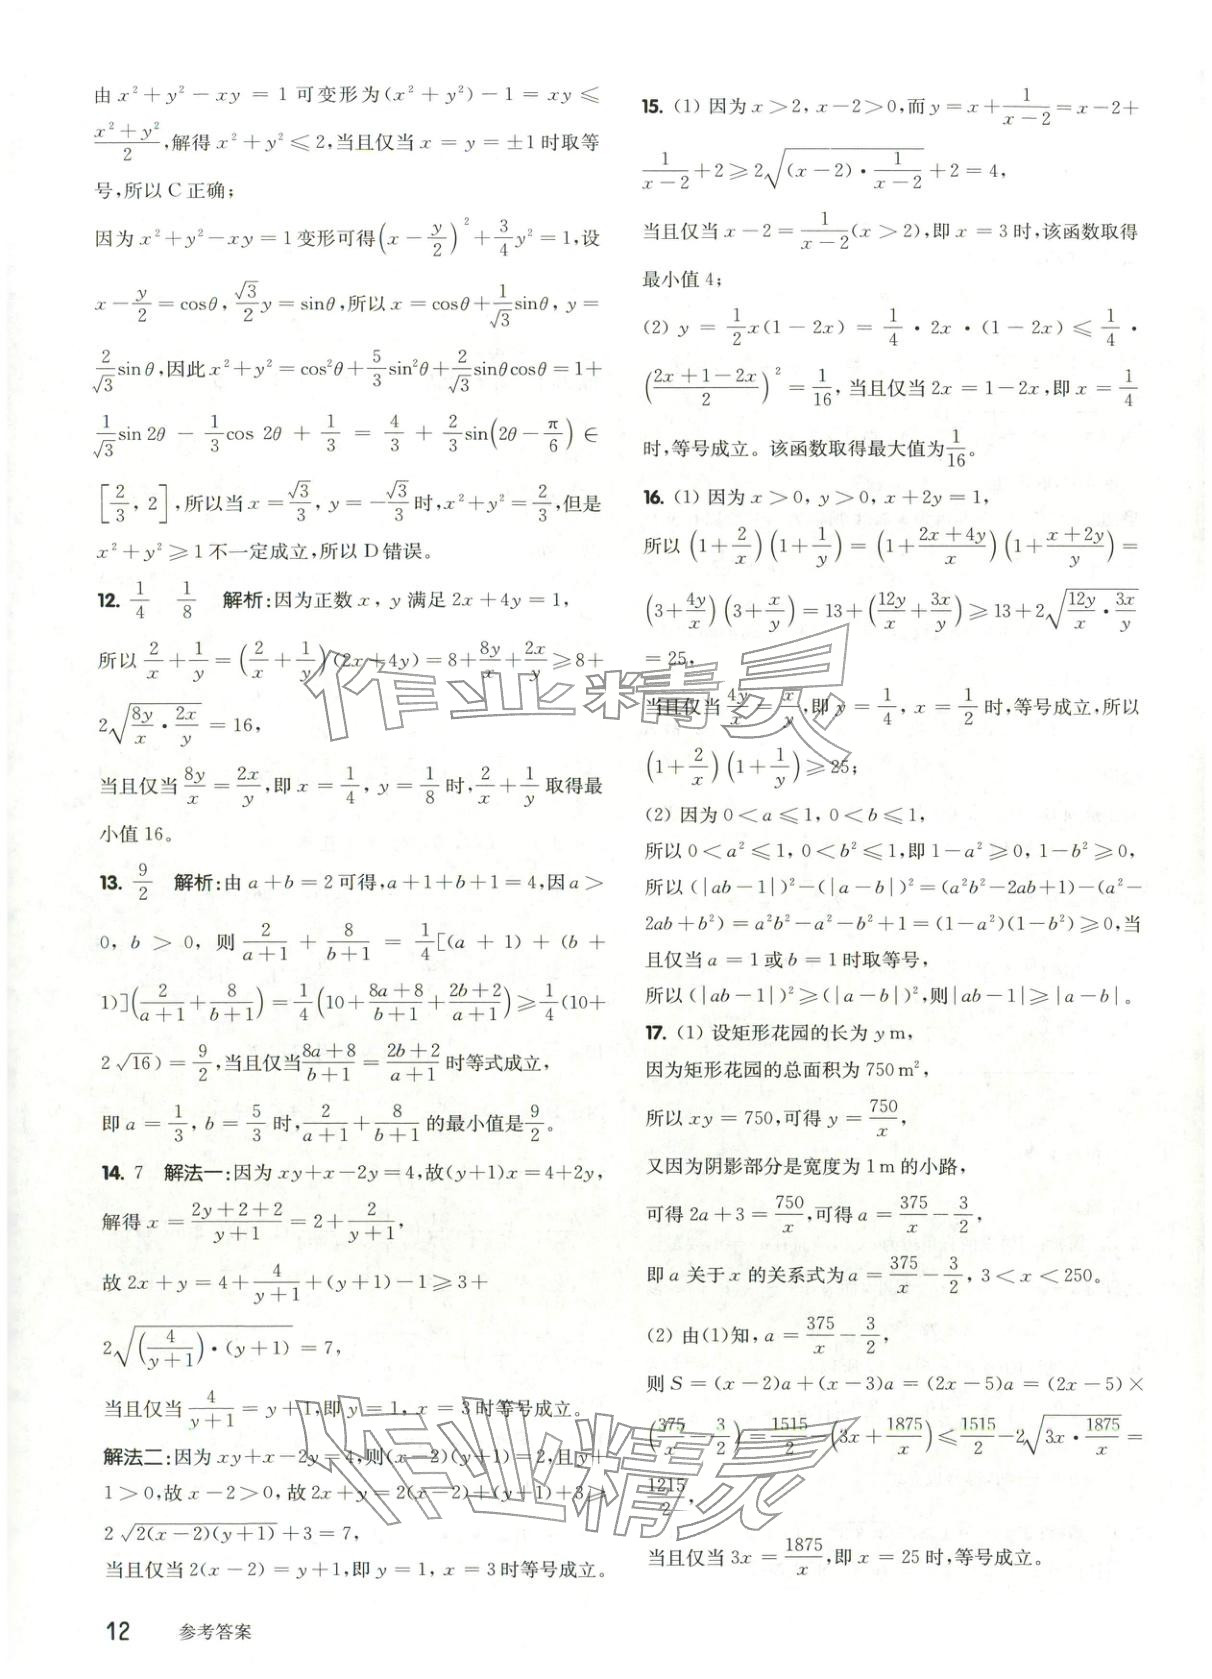 由 x²+y²-xy=1 可变形为(x²+y²)-1=xy≤
(x²+y²)/2,解得 x²+y²≤2,当且仅当 x=y=±1 时取等
号,所以 C 正确;
因为 x²+y²-xy=1 变形可得(x-y/2)²+3/4y²=1,设
x-y/2=cosθ,√3/2y=sinθ,所以 x=cosθ+1/√3sinθ,y=
2/√3sinθ,因此 x²+y²=cos²θ+5/3sin²θ+2/√3sinθcosθ=1+
1/√3sin 2θ-1/3cos 2θ+1/3=4/3+2/3sin(2θ-π/6)∈
[2/3,2],所以当 x=√3/3,y=-√3/3时,x²+y²=2/3,但是
x²+y²≥1 不一定成立,所以 D 错误。
12. 1/4 1/8 解析:因为正数 x,y 满足 2x+4y=1,
所以 2/x+1/y=(2/x+1/y)(2x+4y)=8+8y/x+2x/y≥8+
2√(8y/x·2x/y)=16,
当且仅当 8y/x=2x/y,即 x=1/4,y=1/8 时,2/x+1/y 取得最
小值 16。
13. 9/2 解析:由 a+b=2 可得,a+1+b+1=4,因 a>
0,b>0,则 2/(a+1)+8/(b+1)=1/4[(a+1)+(b+
1)](2/(a+1)+8/(b+1))=1/4(10+(8a+8)/(b+1)+(2b+2)/(a+1))≥1/4(10+
2√16)=9/2,当且仅当(8a+8)/(b+1)=(2b+2)/(a+1)时等式成立,
即 a=1/3,b=5/3 时,2/(a+1)+8/(b+1)的最小值是9/2。
14. 7 解法一:因为 xy+x-2y=4,故(y+1)x=4+2y,
解得 x=(2y+2+2)/(y+1)=2+2/(y+1),
故 2x+y=4+4/(y+1)+(y+1)-1≥3+
2√((4/(y+1))·(y+1))=7,
当且仅当 4/(y+1)=y+1,即 y=1,x=3 时等号成立。
解法二:因为 xy+x-2y=4,则(x-2)(y+1)=2,且 y+
1>0,故 x-2>0,故 2x+y=2(x-2)+(y+1)+3≥
2√(2(x-2)(y+1))+3=7,
当且仅当 2(x-2)=y+1,即 y=1,x=3 时等号成立。
15. (1) 因为 x>2,x-2>0,而 y=x+1/(x-2)=x-2+
1/(x-2)+2≥2√((x-2)·1/(x-2))+2=4,
当且仅当 x-2=1/(x-2)(x>2),即 x=3 时,该函数取得
最小值 4;
(2) y=1/2x(1-2x)=1/4·2x·(1-2x)≤1/4·
((2x+1-2x)/2)²=1/16,当且仅当 2x=1-2x,即 x=1/4
时,等号成立。该函数取得最大值为1/16。
16. (1) 因为 x>0,y>0,x+2y=1,
所以 (1+2/x)(1+1/y)=(1+(2x+4y)/x)(1+(x+2y)/y)=
(3+4y/x)(3+x/y)=13+(12y/x+3x/y)≥13+2√(12y/x·3x/y)
=25,
当且仅当 4y/x=x/y,即 y=1/4,x=1/2 时,等号成立,所以
(1+2/x)(1+1/y)≥25;
(2) 因为 0<a≤1,0<b≤1,
所以 0<a²≤1,0<b²≤1,即 1-a²≥0,1-b²≥0,
所以(|ab-1|)²-(|a-b|)²=(a²b²-2ab+1)-(a²-
2ab+b²)=a²b²-a²-b²+1=(1-a²)(1-b²)≥0,当
且仅当 a=1 或 b=1 时取等号,
所以(|ab-1|)²≥(|a-b|)²,则|ab-1|≥|a-b|。
17. (1) 设矩形花园的长为 y m,
因为矩形花园的总面积为 750 m²,
所以 xy=750,可得 y=750/x,
又因为阴影部分是宽度为 1 m 的小路,
可得 2a+3=750/x,可得 a=375/x-3/2,
即 a 关于 x 的关系式为 a=375/x-3/2,3<x<250。
(2) 由(1)知,a=375/x-3/2,
则 S=(x-2)a+(x-3)a=(2x-5)a=(2x-5)×
(375/x-3/2)=1515/2-(3x+1875/x)≤1515/2-2√(3x·1875/x)=
1215/2,
当且仅当 3x=1875/x,即 x=25 时,等号成立。
12 参考答案
作业精灵
作业精灵